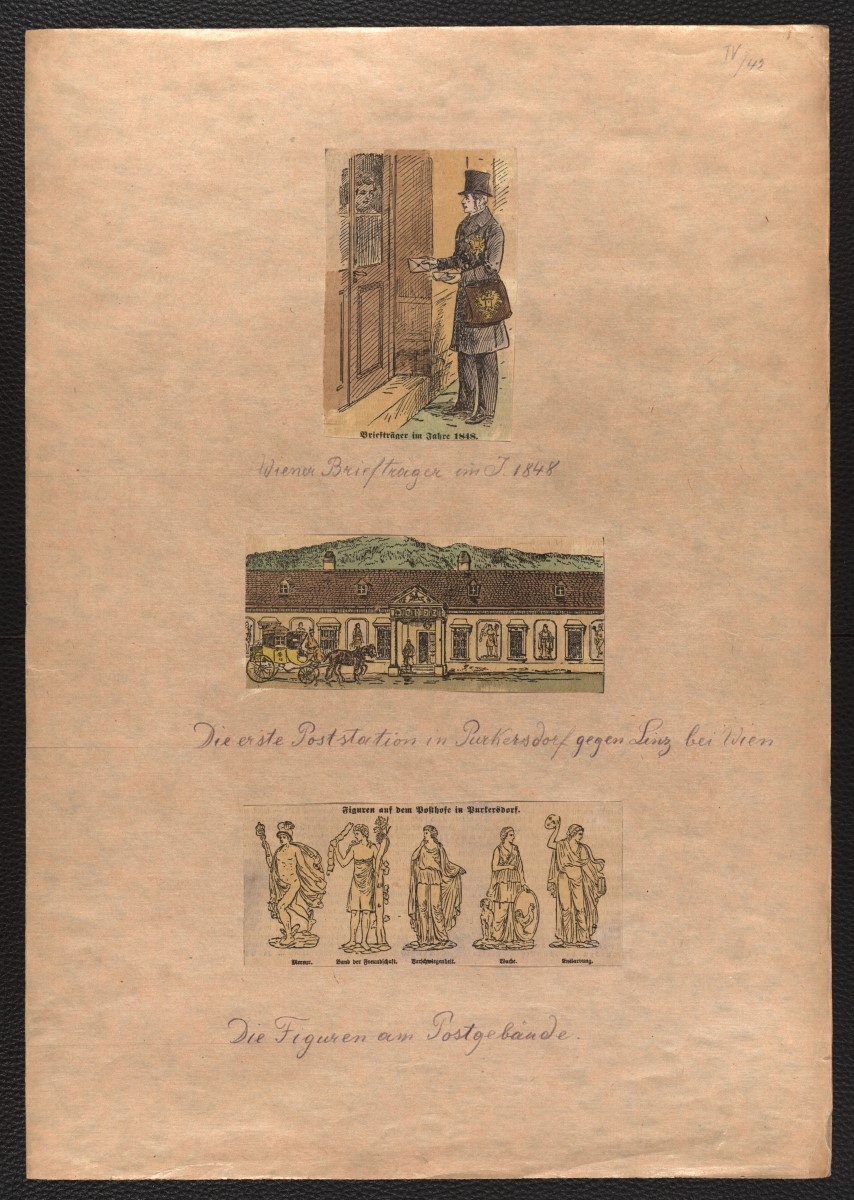 IV/42
Briefträger im Jahre 1848.
Wiener Briefträger im J. 1848
Die erste Poststation in Purkersdorf gegen Linz bei Wien
Figuren auf dem Posthofe in Purkersdorf.
Merkur. Band der Freundschaft. Verschwiegenheit. Wache.
Die Figuren am Postgebäude.